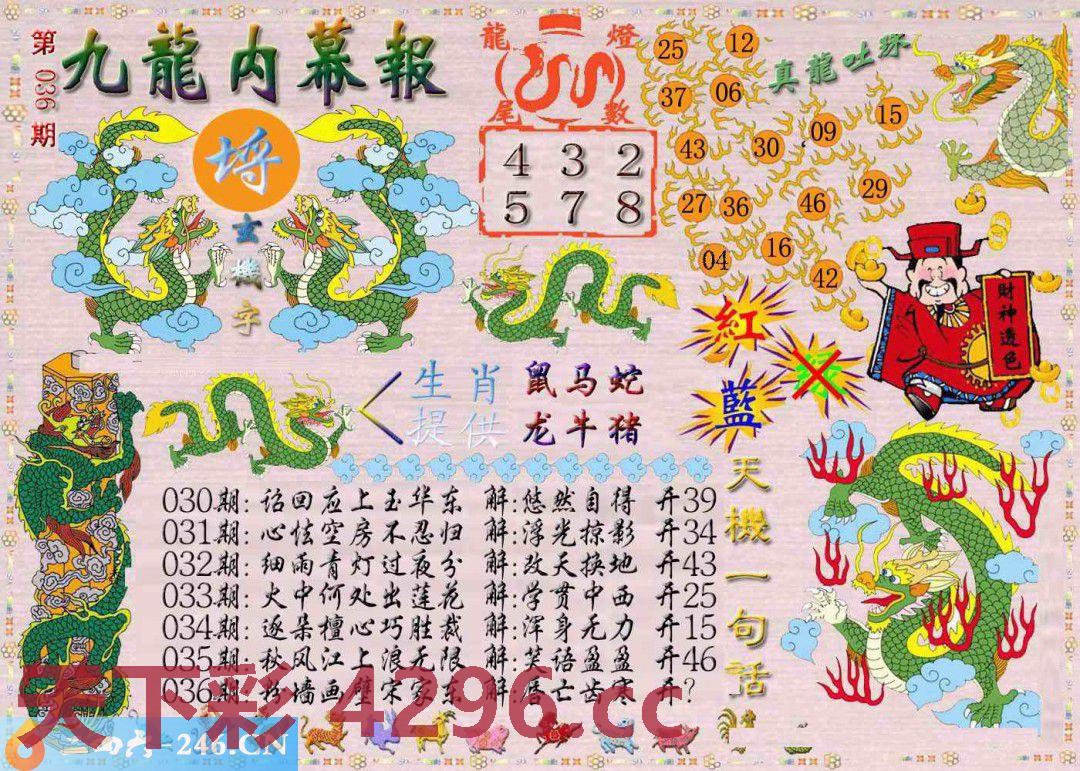 第036期
九龍内幕報
玄機字
龍燈
尾數
4 3 2
5 7 8
真龍吐珠
25 12
37 06
43 30 09 15
27 36 46 29
04 16 42
紅
綠
藍
財神透色
生肖 鼠马蛇
提供 龙牛猪
天機一句話
030期: 诏回应上玉华东 解:悠然自得 开39
031期: 心怯空房不忍归 解:浮光掠影 开34
032期: 细雨青灯过夜分 解:改天换地 开43
033期: 火中何处出莲花 解:学贯中西 开25
034期: 逐朵檀心巧胜裁 解:浑身无力 开15
035期: 秋风江上浪无限 解:笑语盈盈 开46
036期: 粉墙画壁宋家东 解:唇亡齿寒 开?
天下彩 4296.cc
=246.CN